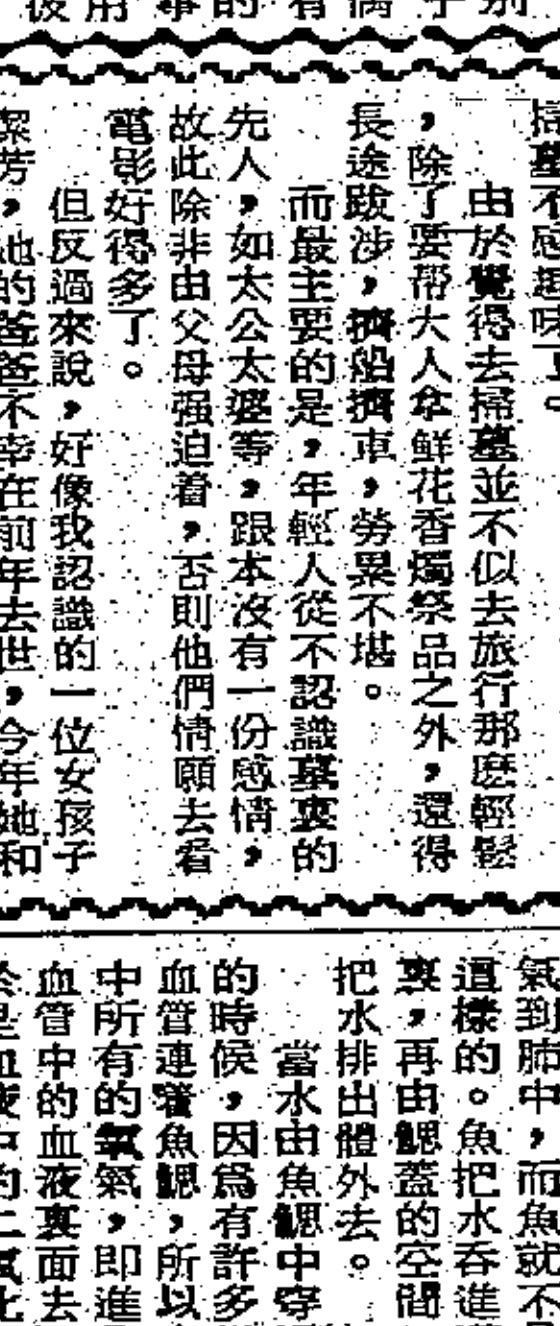 彼用事的有偶子別
掃墓不感趣味了。
由於覺得去掃墓並不似去旅行那麽輕鬆
，除了要帮大人拿鮮花香燭祭品之外，還得
長途跋涉，擠船擠車，勞累不堪。
而最主要的是，年輕人從不認識墓裏的
先人，如太公太婆等，跟本沒有一份感情，
故此除非由父母强迫着，否則他們情願去看
電影好得多了。
但反過來說，好像我認識的一位女孩子
潔芳，她的爸爸不幸在前年去世，今年她和
氣到肺中，而魚就不
這樣的。魚把水吞進
裏，再由鰓蓋的空間
把水排出體外去。
當水由魚鰓中穿
的時候，因爲有許多
血管連着魚鰓，所以
中所有的氧氣，即進
血管中的血液裏面去
於是血液中的二氧化